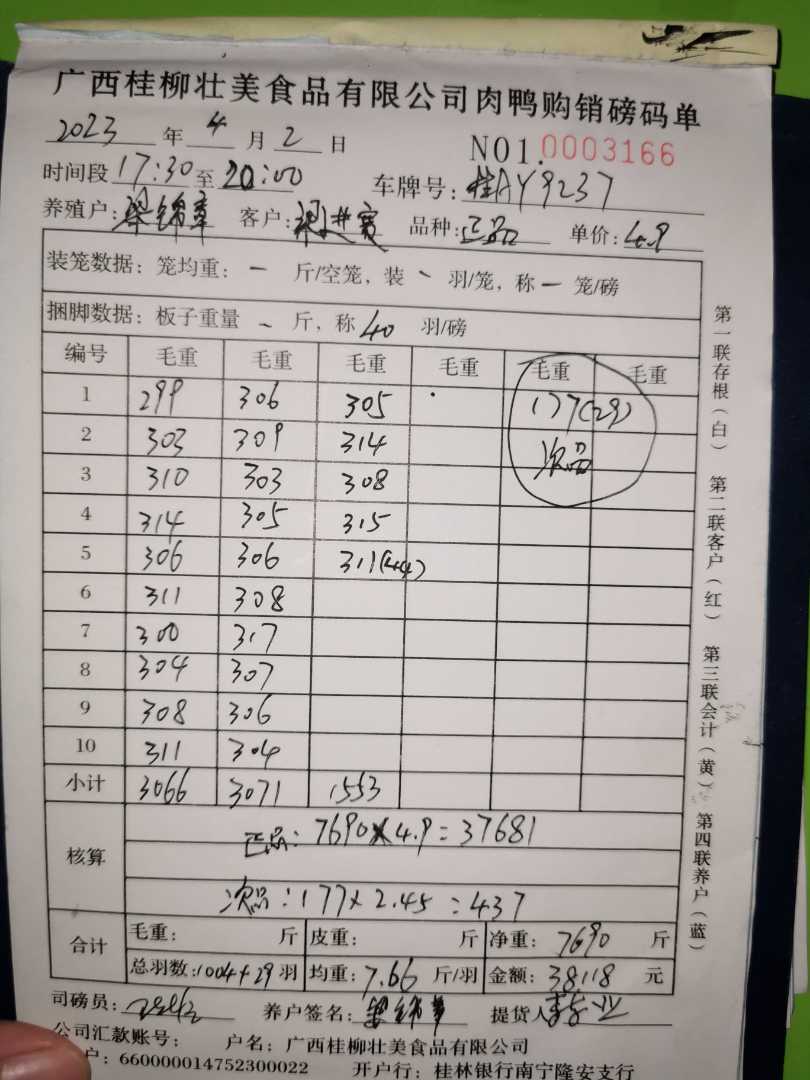 广西桂柳壮美食品有限公司肉鸭购销磅码单
2023 年 4 月 2 日 NO1.0003166
时间段 17:30 至 20:00 车牌号: 桂AY9237
养殖户: 梁锦章 客户: 梁进宽 品种: 正品 单价: 4.9
装笼数据: 笼均重: 一 斤/空笼, 装 一 羽/笼, 称 一 笼/磅
捆脚数据: 板子重量 一 斤, 称 40 羽/磅
编号 毛重 毛重 毛重 毛重 毛重 毛重
1 299 306 305 177(29)
2 303 309 314 次品
3 310 303 308
4 314 305 315
5 306 306 311(44)
6 311 308
7 300 317
8 304 307
9 308 306
10 311 304
小计 3066 3071 1553
核算 正品: 7690×4.9=37681
次品: 177×2.45=437
合计 毛重: 斤 皮重: 斤 净重: 7690 斤
总羽数: 1004+29 羽 均重: 7.66 斤/羽 金额: 38118 元
司磅员: 养户签名: 梁锦章 提货人
公司汇款账号: 户名: 广西桂柳壮美食品有限公司
户: 660000014752300022 开户行: 桂林银行南宁隆安支行
第一联存根(白) 第二联客户(红) 第三联会计(黄) 第四联养户(蓝)